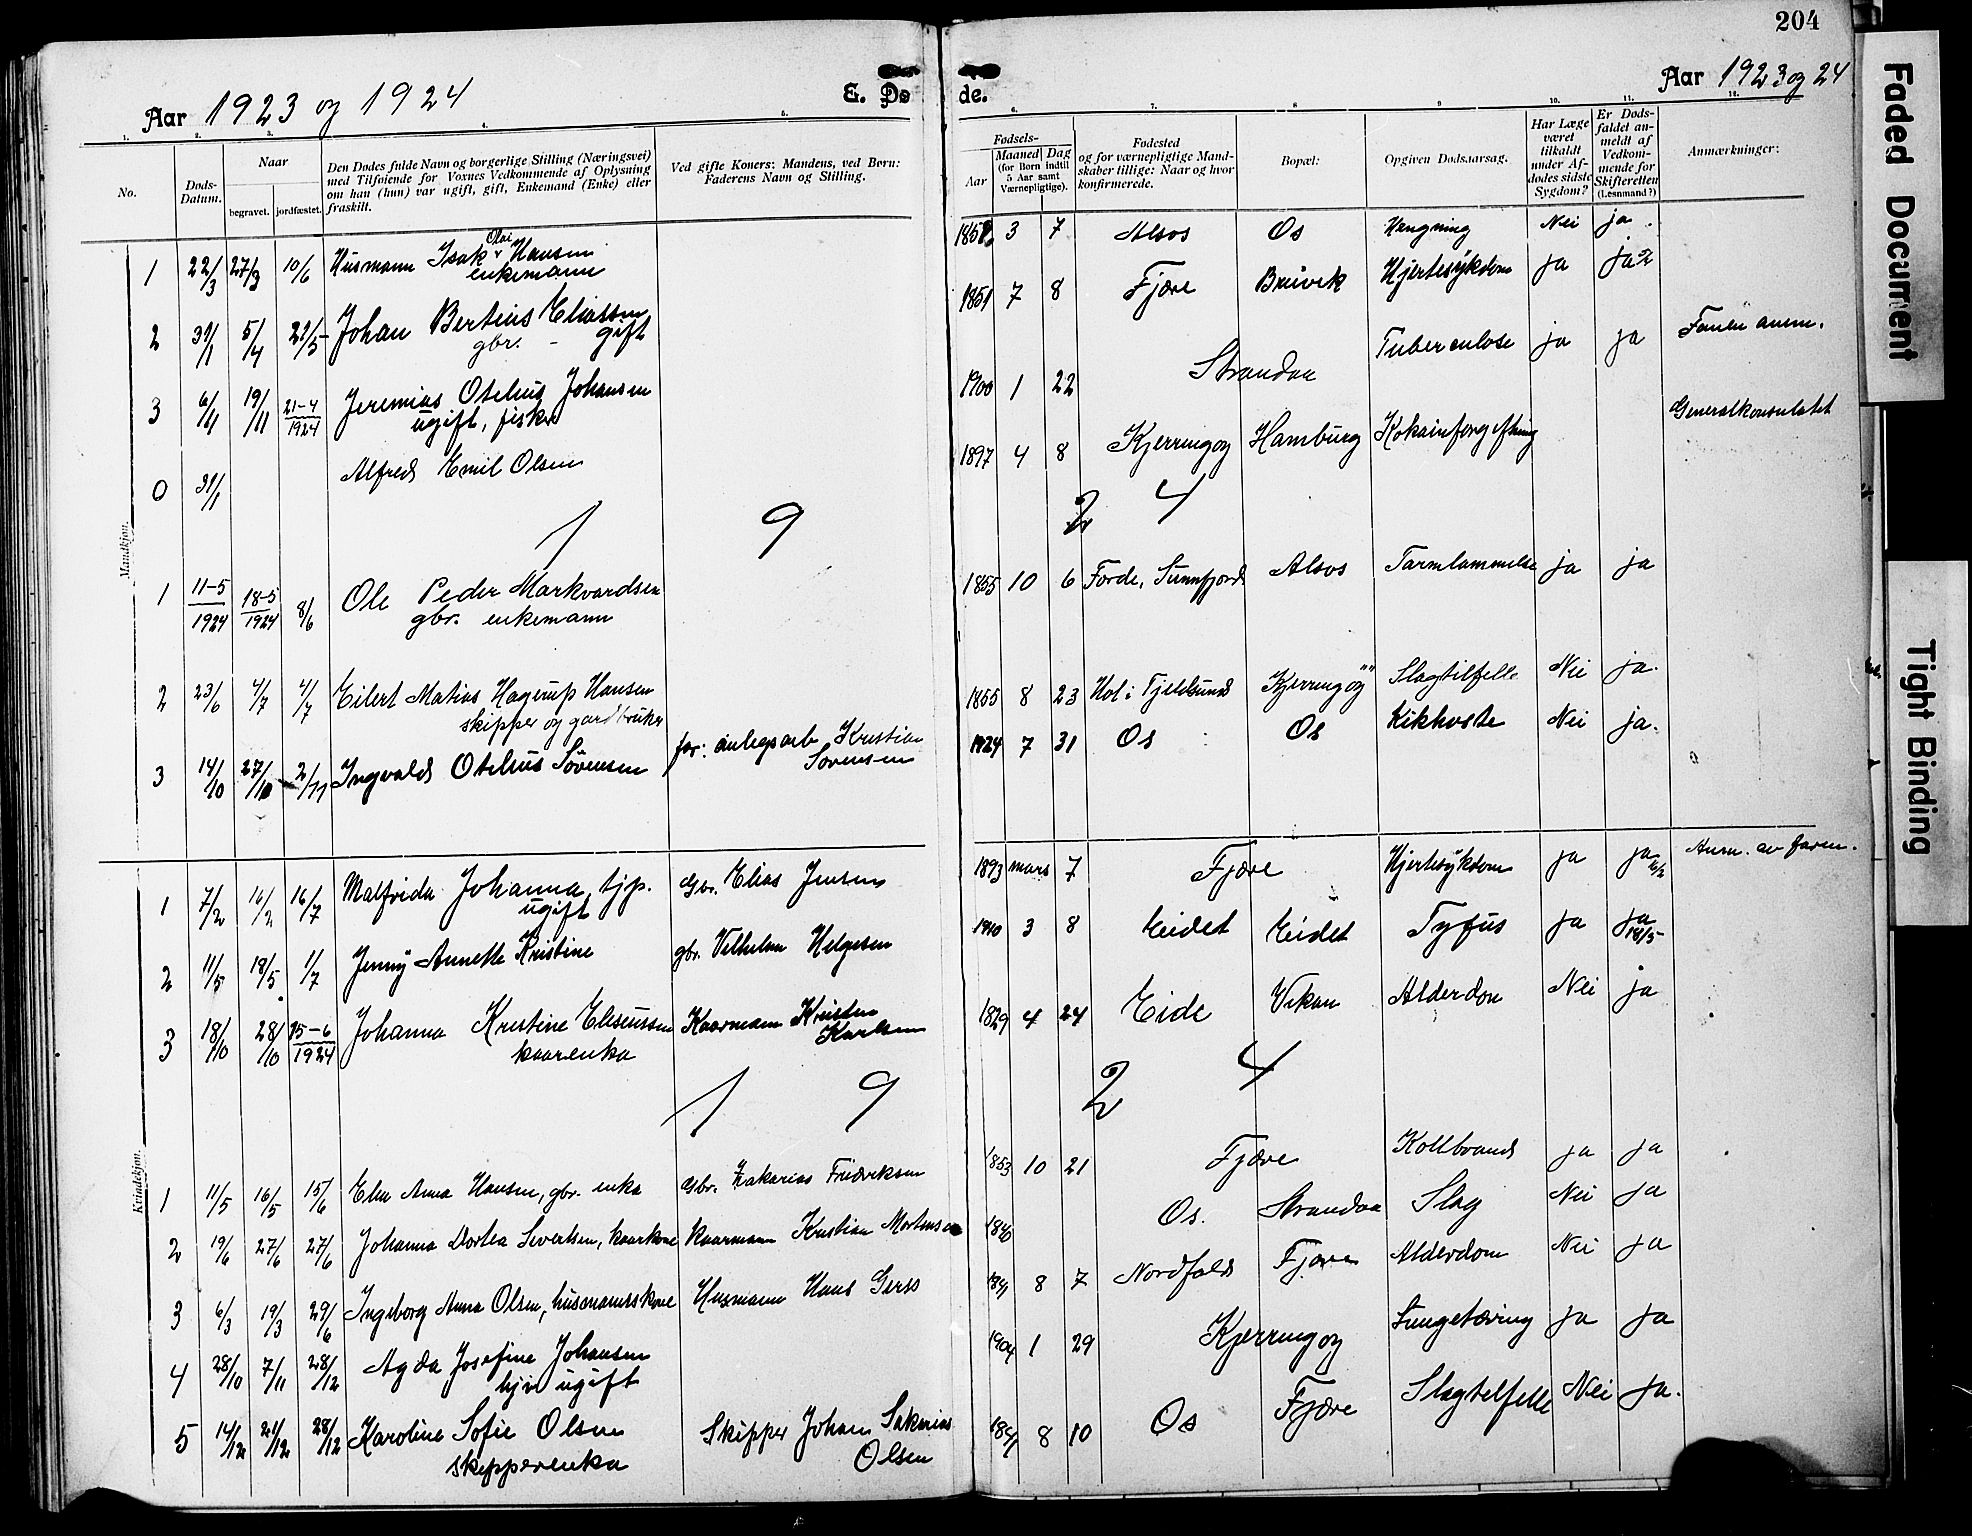 204
Aar 1923 og 1924
E. Dø
de.
Aar 1923 og 24
1. 2. 3. 4. 5. 6. 7. 8. 9. 10. 11. 12.
No.
Døds-
Datum.
Naar
begravet. jordfæstet.
Den Dødes fulde Navn og borgerlige Stilling (Næringsvei)
med Tilføiende for Voxnes Vedkommende af Oplysning
om han (hun) var ugift, gift, Enkemand (Enke) eller
fraskilt.
Ved gifte Koners: Mandens, ved Børn:
Faderens Navn og Stilling.
Fødsels-
Aar
Maaned Dag
(for Børn indtil
5 Aar samt
Værnepligtige).
Fødested
og for værnepligtige Mand-
skaber tillige: Naar og hvor
konfirmerede.
Bopæl:
Opgiven Dødsaarsag.
Har Læge
været
tilkaldt
under Af-
dødes sidste
Sygdom?
Er Døds-
faldet an-
meldt af
Vedkom-
mende for
Skifteretten
(Lensmand?)
Anmærkninger:
Mandkjøn.
1 22/3 27/3 10/6 Husmann Isak Olai Hansen 3 7 Alsos Os Hengning Nei ja.
enkemann
2 31/1 5/4 21/5 Johan Bertius Eliassen 1851 7 8 Fjære Brüvik Hjertesykdom ja ja
gbr. - gift
3 6/11 19/11 21-4 1924 Jeremias Otelius Johansen 1900 1 22 Strandaa Tuberculose ja ja Faren anm.
ugift, fisker
0 31/1 Alfred Emil Olsen 1897 4 8 Kjerringøy Hamburg Kokainforgiftning Generalkonsulatet
1 9 2 4
1 11-5 1924 18-5 1924 8/6 Ole Peder Markvardsen 1855 10 6 Førde, Sunnfjord Alsos Tarmlammelse ja ja
gbr. enkemann
2 23/6 4/7 4/7 Eilert Matias Hagerup Hansen 1855 8 23 Hol i Tjeldsund Kjerringøy Slagtilfelle Nei ja.
skipper og gardbruker
3 14/10 27/10 2/11 Ingvald Otelius Sørensen far: anlegsarb. Kristian 1924 7 31 Os Os Kikhoste Nei ja.
Sørensen
Kvindekjøn.
1 7/2 16/2 16/7 Malfrida Johanna, tjp. Gbr. Elias Jensen 1893 mars 7 Fjære Hjertesykdom ja ja Anm. av faren.
ugift
2 11/5 18/5 1/7 Jenny Annette Kristine gbr. Vilhelm Helgesen 1910 3 8 Eidet Eidet Tyfus ja ja 18/5
3 18/10 28/10 15-6 1924 Johanna Kristine Eliseussen Kaarmann Kristen 1829 4 24 Eide Vikan Alderdom Nei ja
kaarenka Karlsen
1 9 2 4
1 11/5 16/5 15/6 Elen Anna Hansen, gbr. enka Gbr. Zakarias Fredriksen 1853 10 21 Fjære Koldbrand ja ja
2 19/6 27/6 27/6 Johanna Dortea Sivertsen, kaarkone kaarmann Kristian Mortensen 1840 Os. Strandaa Slag Nei ja
3 6/3 19/3 29/6 Ingeborg Anna Olsen, husmannskone Husmann Hans Gerss 1841 8 7 Nordfold Fjære Alderdom Nei ja
4 28/10 7/11 28/12 Agda Josefine Johansen 1904 1 29 Kjerringøy Lungetæring ja ja
ugift
5 14/12 21/12 28/12 Karoline Sofie Olsen Skipper Johan Sakarias 1841 8 10 Os Fjære Slagtilfelle Nei ja.
skipperenka Olsen
Faded Document
Tight Binding